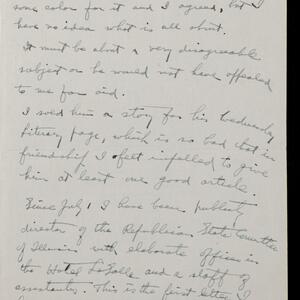 some color for it and I agreed, but I
have no idea what is all about.
It must be about a very disagreeable
subject or he would not have appealed
to me for aid.
I sold him a story for his Wednesday
literary page, which is so bad that in
friendship I felt impelled to give
him at least one good article.
Since July 1 I have been publicity
director of the Republican State Committee
of Illinois with elaborate offices in
the Hotel LaSalle and a staff of
assistants. This is the first letter I